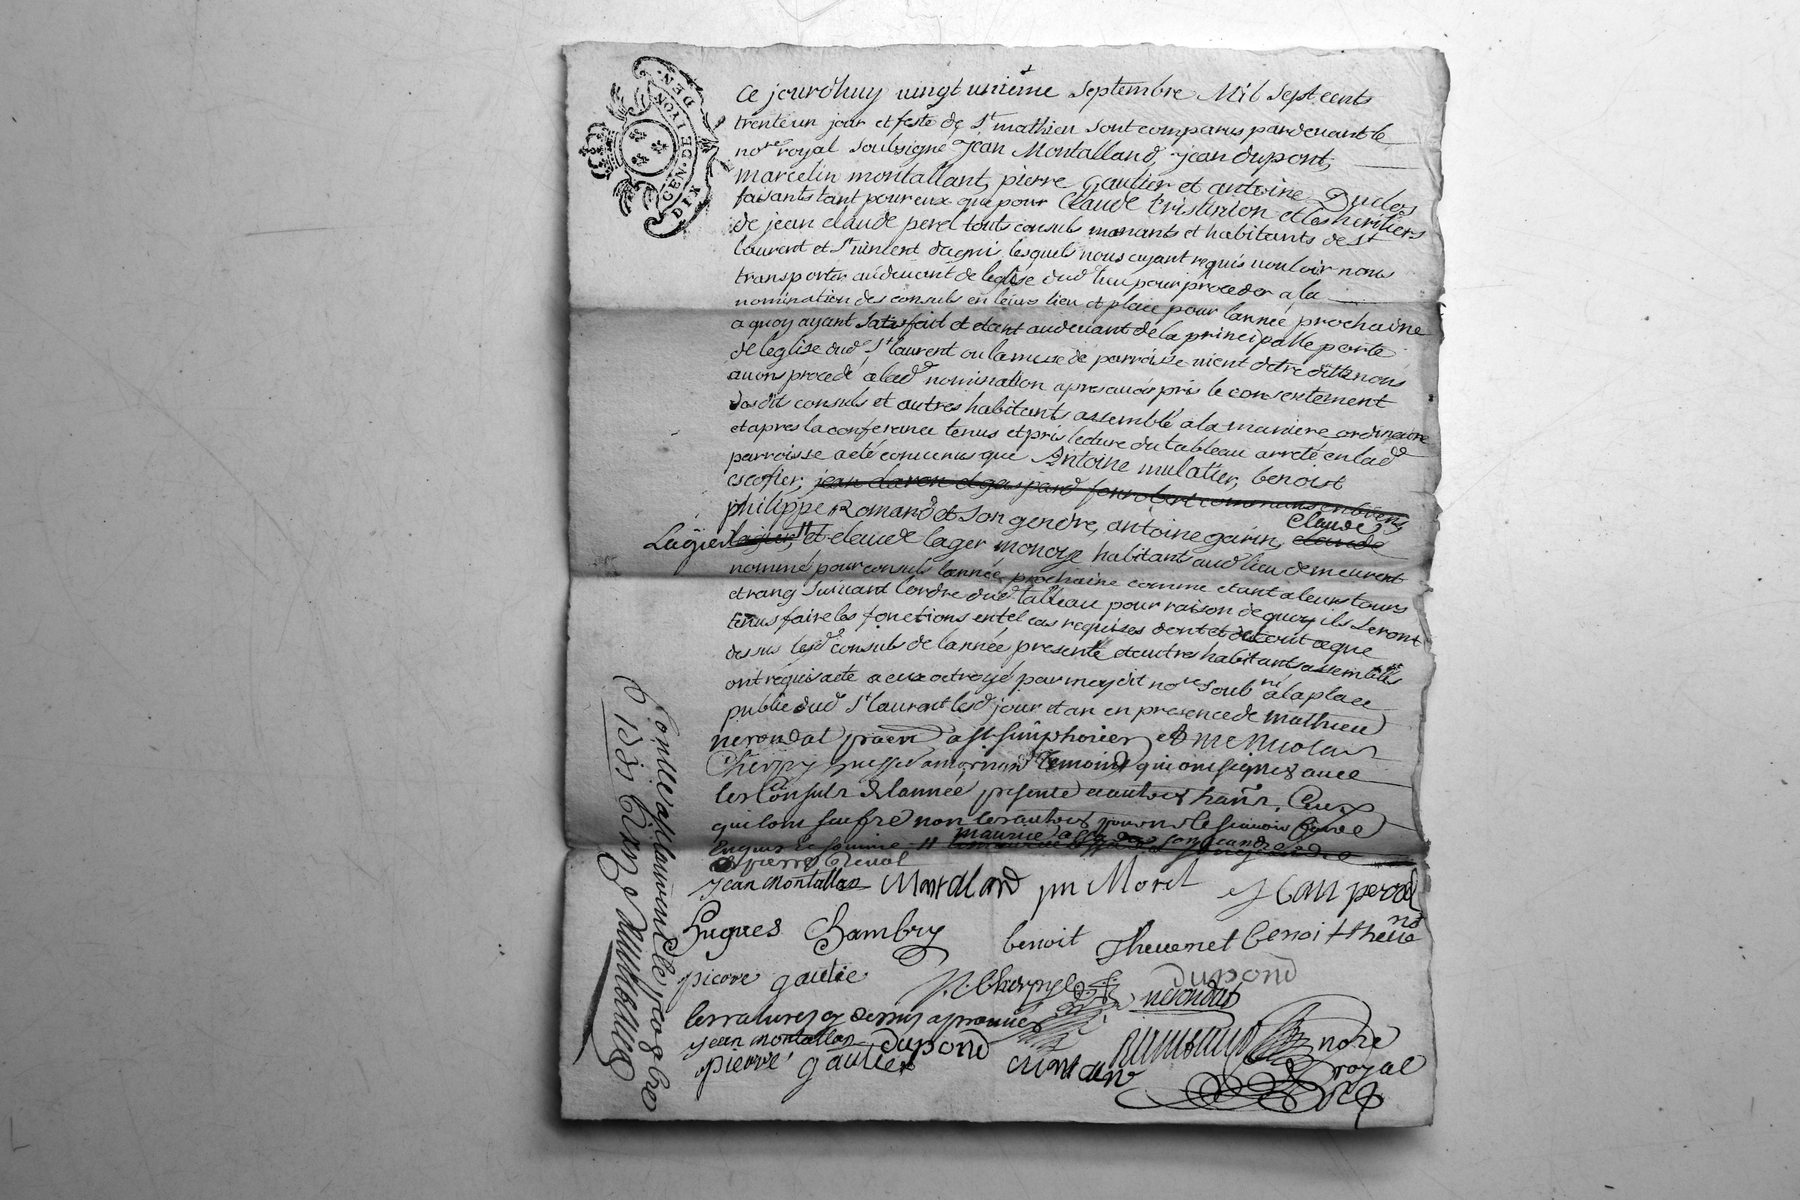 GEN. DE LYON. DEN.
DIX
Ce jourd'huy vingt unième Septembre Mil Sept cents
trente un jour et feste de St mathieu sont comparus pardevant le
nore royal soubsigné Jean Montalland, jean dupont,
marcelin montallant, pierre Gautier et antoine Duclos
faisants tant pour eux que pour Claude et les heritiers
de jean claude perel touts consuls manants et habitants de St
laurent et St vincent dagni, lesquels nous ayant requis vouloir nous
transporter audevant de leglise dud lieu pour proceder a la
nomination des consuls en leurs lieu et place pour lannée prochaine
a quoy ayant satisfait et etant audevant de la principalle porte
de leglise dud St laurent ou la messe de parroisse vient detre ditte nous
avons procedé a lad nomination apres avoir pris le consentement
desdits consuls et autres habitants assemblé a la maniere ordinaire
et apres la conference tenus et pris lecture du tableau arreté en lad
parroisse a eté convenus que Antoine mulatier, benoist
escofier, jean
philippe Romand et son gendre, antoine garin, Claude claude
Lagier et claude lager habitant aud lieu demeurent
nommé pour consuls lannée prochaine comme etant a leurs tours
et rang suivant lordre dud tableau pour raison de quoy ils seront
tenus faire les fonctions en tel cas requises dont et de tout ce que
dessus lesd consuls de lannée presente et autres habitants assemblés
ont requis acte a eux octroyé par moy dit nore soubné a la place
publie dud St laurent lesd jour et an en presence de mathieu
nerondat praen a st simphorien et Me Nicolas
Cherpy temoins qui ont signes avec
les Consuls de lannée presente et autres hans. Ceux
qui lont sceu fre non les autres pour ne le scavoir
Enquis et sommé maurice
pierre
jean montallan Montaland Morel Jean perod
hugues Chambry benoit Thevenet benoit theve
no
pierre gautie Cherpy dupond
nerondat
les ratures cy dessus aprouvées
jean montallan dupond
pierre gautier nore
royal